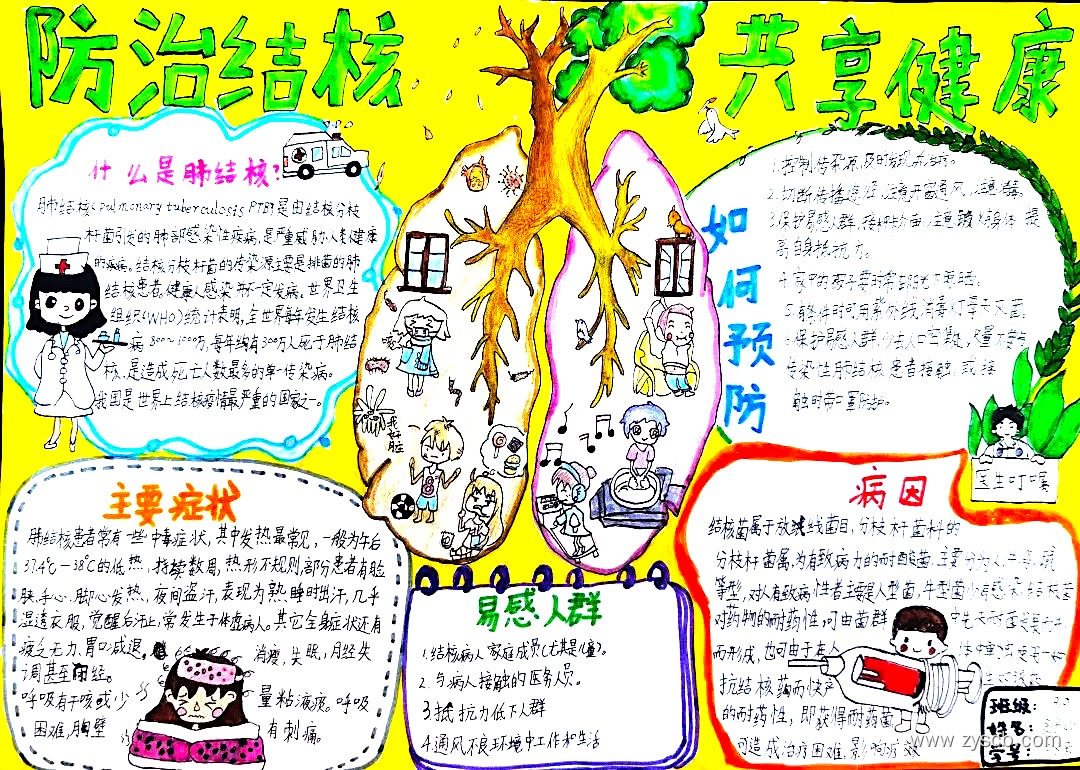 防治结核
共享健康
什么是肺结核?
肺结核(pulmonary tuberculosis PTB)是由结核分枝
杆菌引发的肺部感染性疾病,是严重威胁人类健康
的疾病。结核分枝杆菌的传染源主要是排菌的肺
结核患者,健康人感染并不一定发病。世界卫生
组织(WHO)统计表明,全世界每年发生结核
病800~1000万,每年约有300万人死于肺结
核,是造成死亡人数最多的单一传染病。
我国是世界上结核疫情最严重的国家之一。
如何预防
1.控制传染源,及时发现并治疗。
2.切断传播途径,注意开窗通风,注意消毒。
3.保护易感人群,接种疫苗,注意锻炼身体 提
高自身抵抗力。
6.保护易感人群,少去人口密
传染性肺结核患者接触,或接
触时带口罩防护。
医生叮嘱
我好脏
主要症状
肺结核患者常有一些中毒症状,其中发热最常见,一般为午后
37.4℃-38℃的低热,持续数周,热形不规则,部分患者有脸
颊、手心、脚心发热,夜间盗汗,表现为熟睡时出汗,几乎
湿透衣服,觉醒后汗止,常发生于体虚病人。其它全身症状还有
疲乏无力,胃口减退,消瘦,失眠,月经失
调甚至闭经。
呼吸有干咳或少量粘液痰。呼吸
困难,胸壁有刺痛。
易感人群
1.结核病人家庭成员(尤其是儿童)。
2.与病人接触的医务人员。
3.抵抗力低下人群
4.通风不良环境中工作和生活
病因
结核菌属于放线菌目,分枝杆菌科的
分枝杆菌属,为有致病力的耐酸菌.主要分为人、牛、
等型,对人有致病性者主要是人型菌,牛型菌少有感染
对药物的耐药性,可由菌群
而形成,也可由于在人
抗结核药而快产
的耐药性,即获得耐药菌
可造成治疗困难,影响疗效
班级:
姓名:
学号:
www.zysco.com